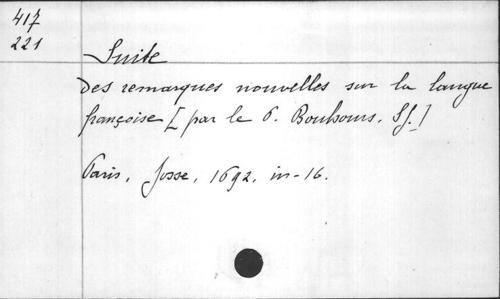 417
221
Suite
des remarques nouvelles sur la langue
françoise [par le P. Bouhours. S.J.]
Paris, Josse, 1692. in-16.